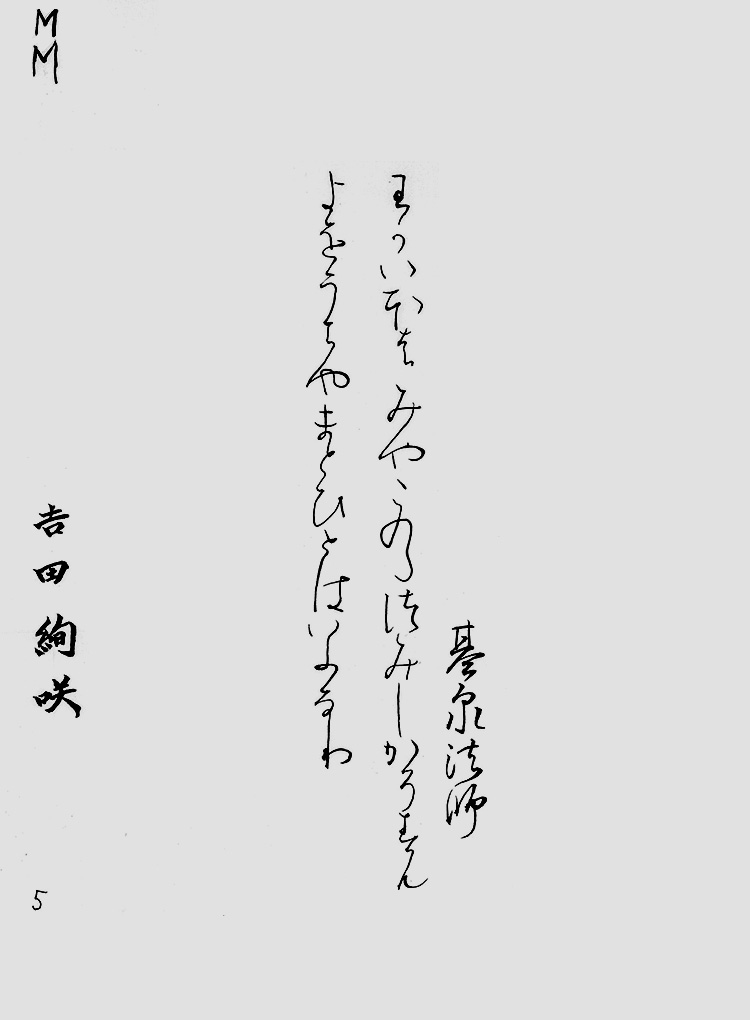 基泉法師
わかいほはみやこのたつみしかそすむ
よをうちやまとひとはいふなり
MM
吉田絢咲
5